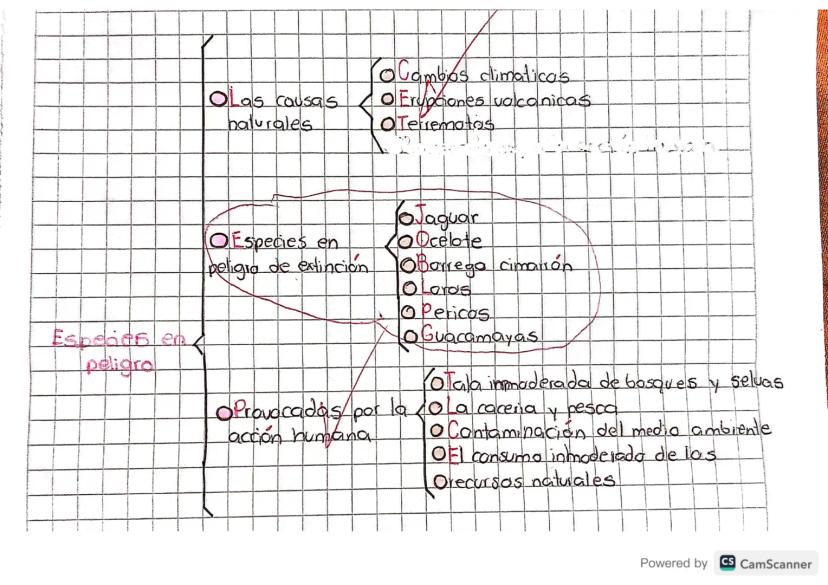 Las causas
naturales
Cambios climaticos
Erupciones volcanicas
Terremotos
Especies en
peligro de extinción
Jaguar
Ocelote
Borrego cimarrón
Loros
Pericos
Guacamayas
Especies en
peligro
Provocadas por la
acción humana
Tala inmoderada de bosques y selvas
La caceria y pesca
Contaminación del medio ambiente
El consumo inmoderado de los
recursos naturales
Powered by CS CamScanner